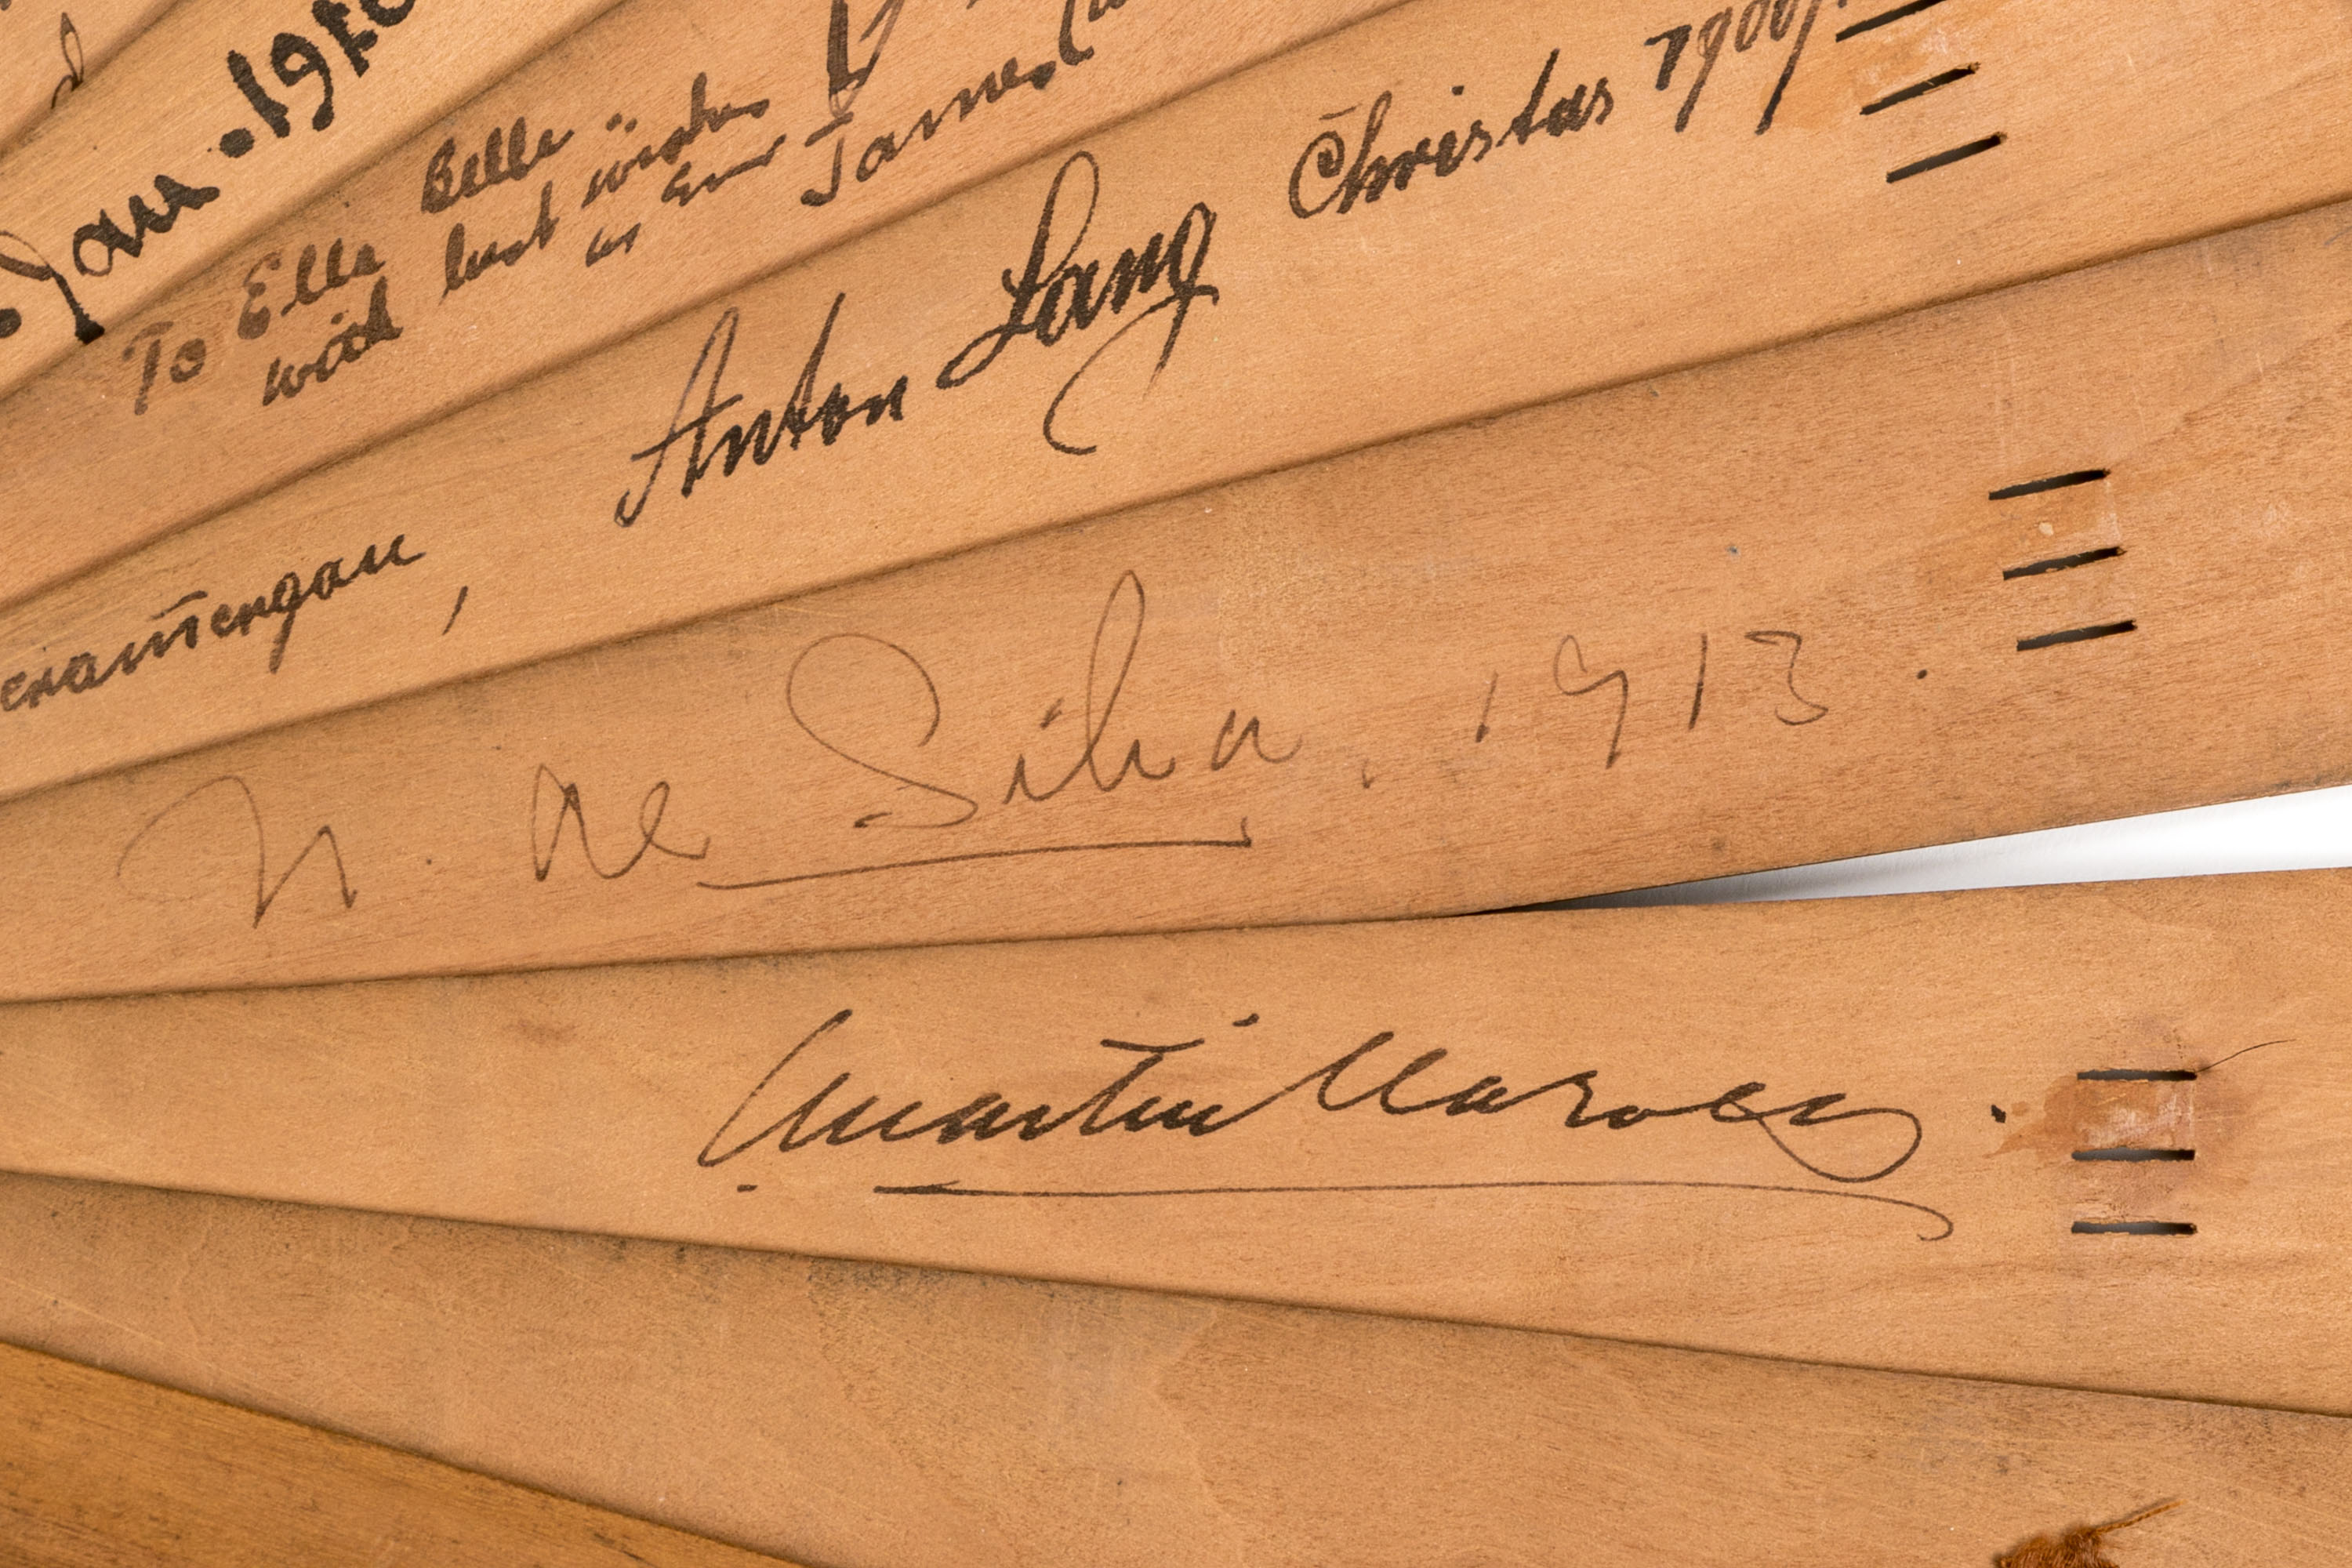 Jan. 1910
To Ella Belle
with best wishes
as Ever James
Anton Lang Christas 1900
N. de Silva. 1913.
Martin Harvey.